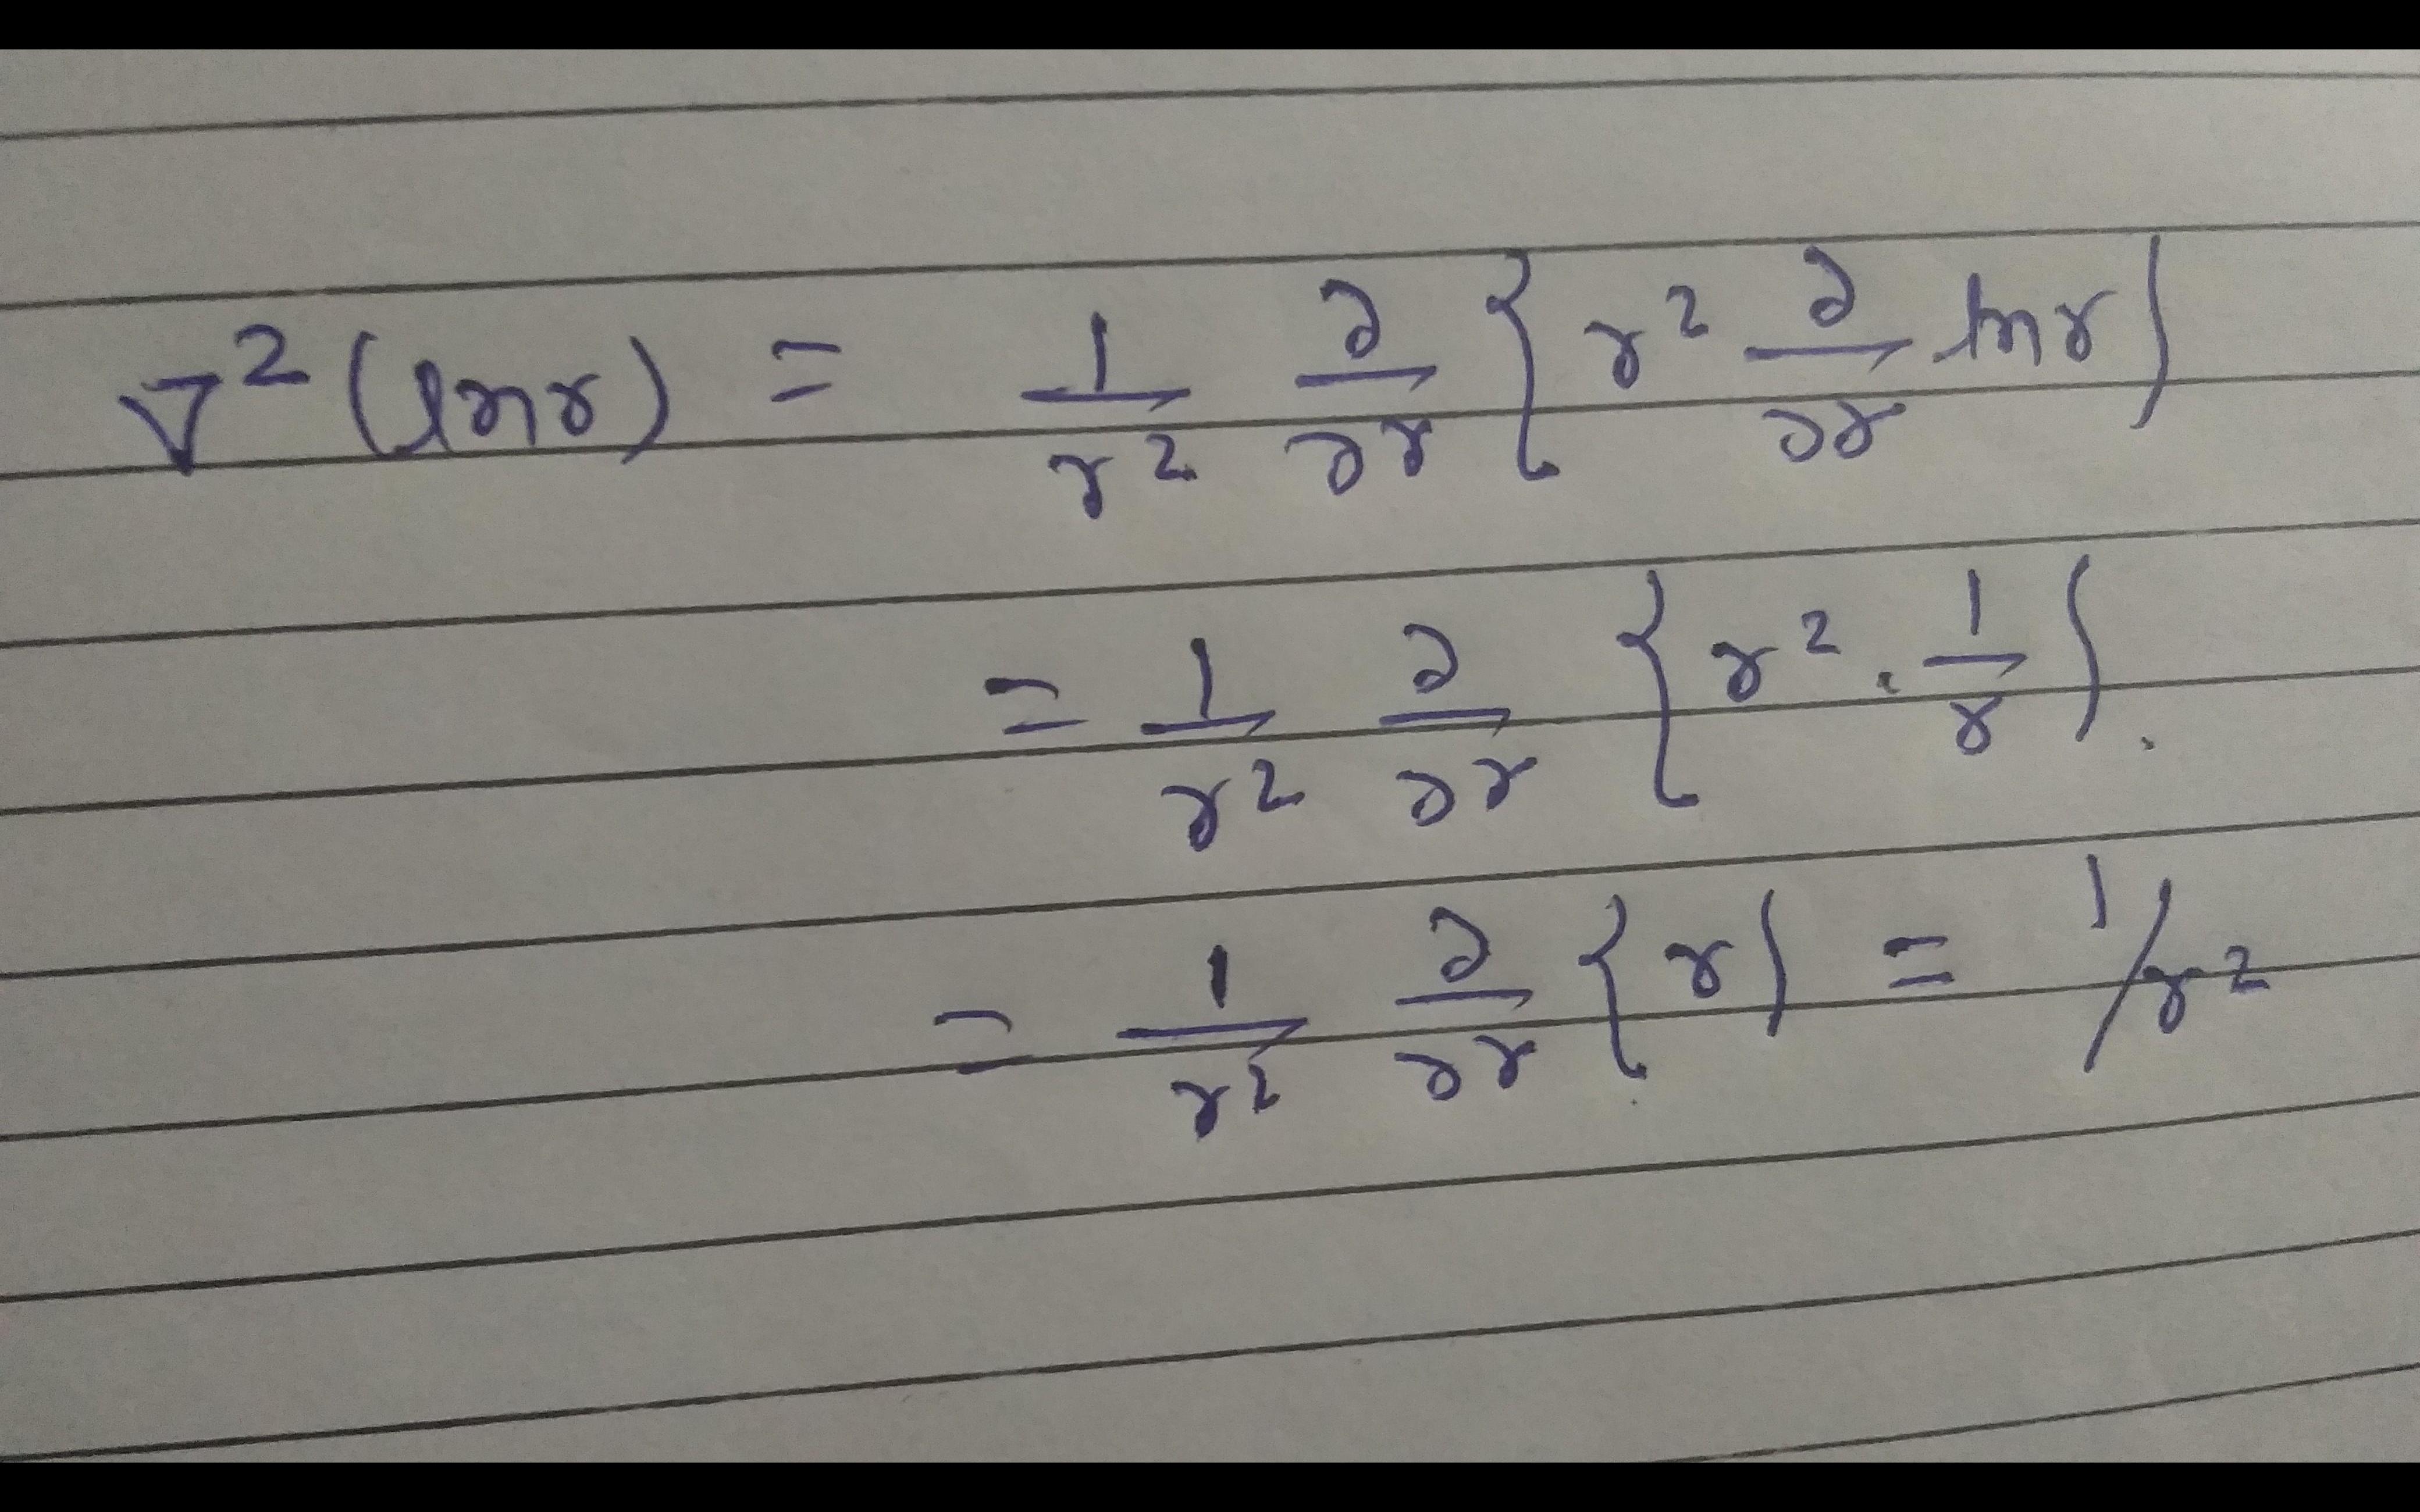 ∇²(ln r) = 1/r² ∂/∂r {r² ∂/∂r ln r}
= 1/r² ∂/∂r {r² . 1/r}.
= 1/r² ∂/∂r {r} = 1/r²